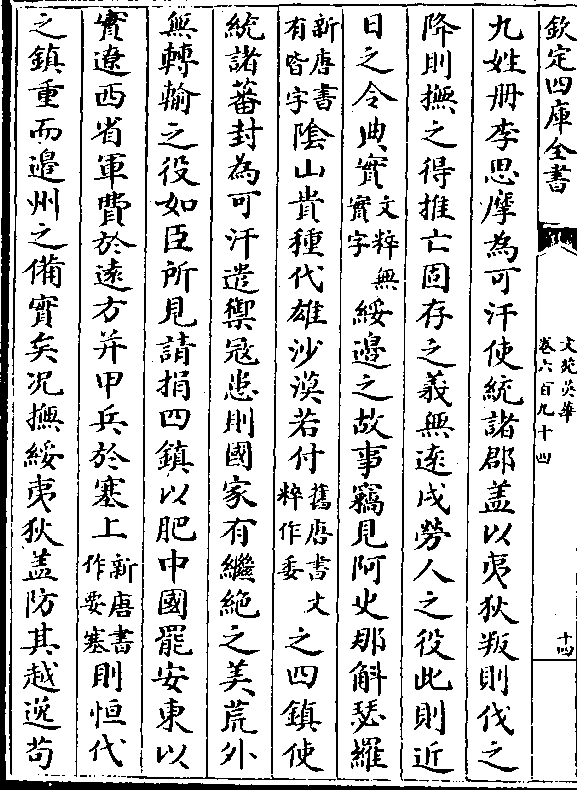 欽定四庫全書
文苑英華
卷六百九十四
十四
九姓冊李思摩為可汗使統諸郡盖以夷狄叛則伐之
降則撫之得推亡固存之義無逺戍勞人之役此則近
日之令典實文粹無實字綏邉之故事竊見阿史那斛瑟羅
新唐書有皆字隂山貴種代雄沙漠若付舊唐書文粹作委之四鎮使
統諸蕃封為可汗遣禦冦患則國家有繼絶之美荒外
無轉輸之役如臣所見請捐四鎮以肥中國罷安東以
實遼西省軍費於遠方并甲兵於塞上新唐書作要塞則恒代
之鎮重而邉州之備實矣况撫綏夷狄盖防其越逸茍